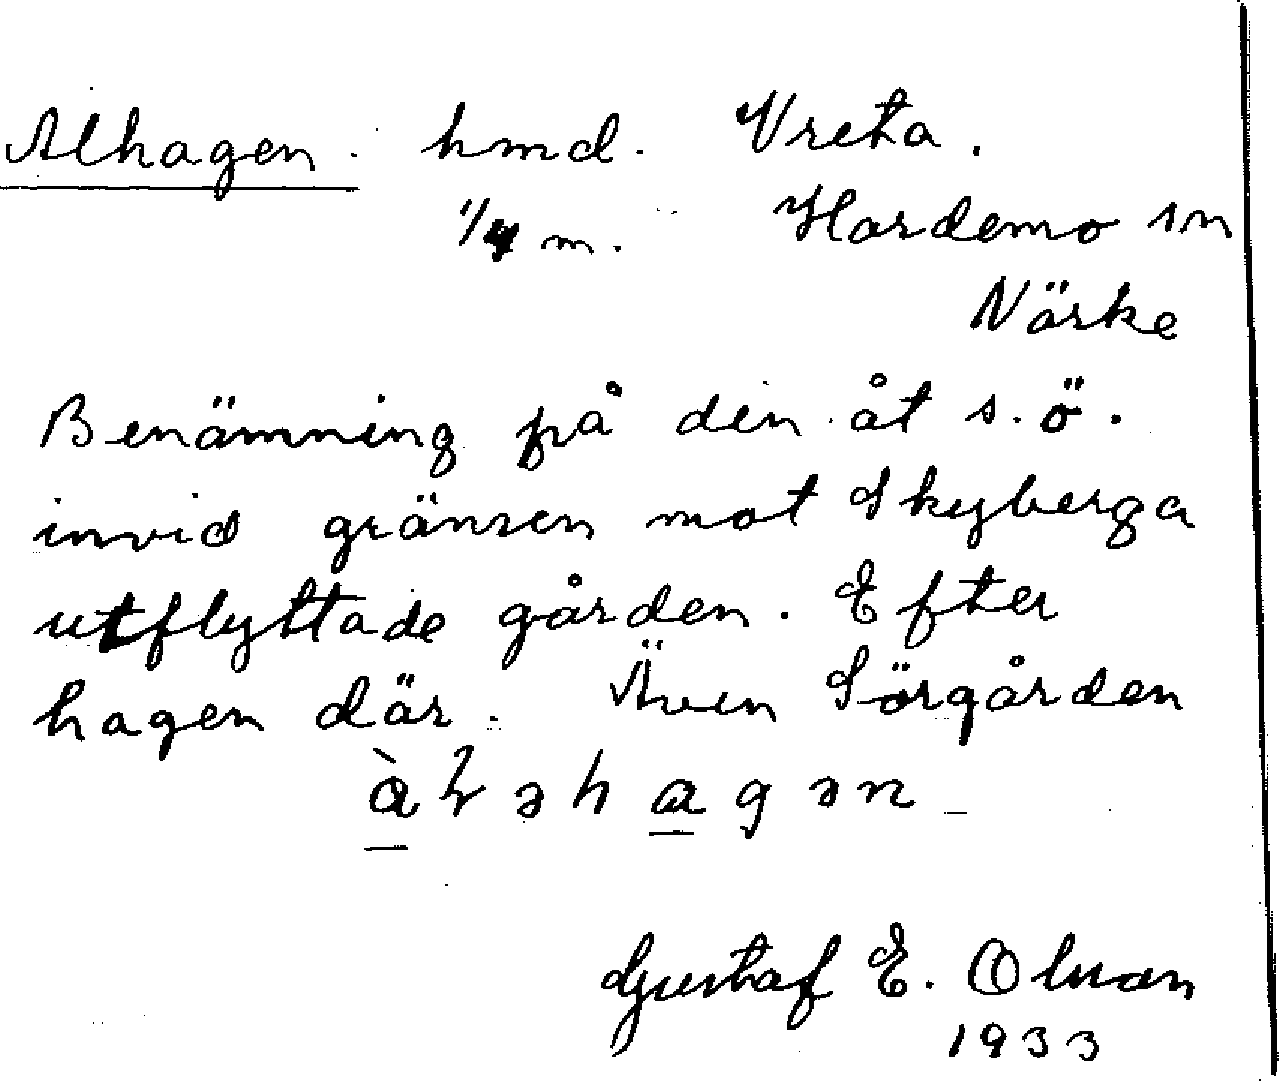 Alhagen. hmd. Vreta.
1/4 m. Hardemo sn
Närke
Benämning på den åt s.ö.
invid gränsen mot Skyberga
utflyttade gården. Efter
hagen där. Även Sörgården
àɫəhagən
Gustaf E. Olsson
1933